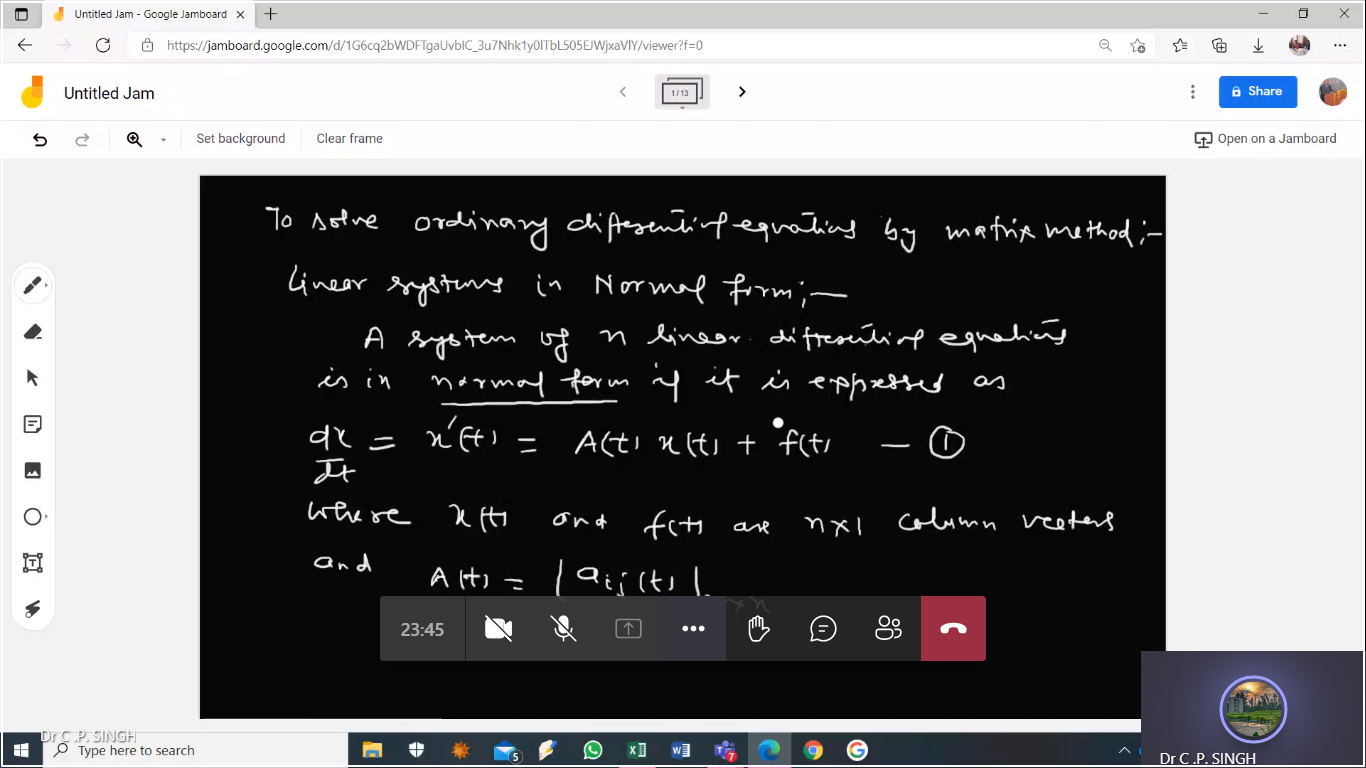 Untitled Jam - Google Jamboard
https://jamboard.google.com/d/1G6cq2bWDFTgaUvbIC_3u7Nhk1y0lTbL505EJWjxaVlY/viewer?f=0
Untitled Jam
1/13
Share
Set background
Clear frame
Open on a Jamboard
To solve ordinary differential equations by matrix method:-
Linear systems in Normal form:-
A system of n linear differential equations
is in normal form if it is expressed as
dx/dt = x'(t) = A(t) x(t) + f(t) - ①
where x(t) and f(t) are n×1 column vectors
and A(t) = [aij(t)]n×n
23:45
Dr C .P. SINGH
Type here to search
5
7
Dr C .P. SINGH